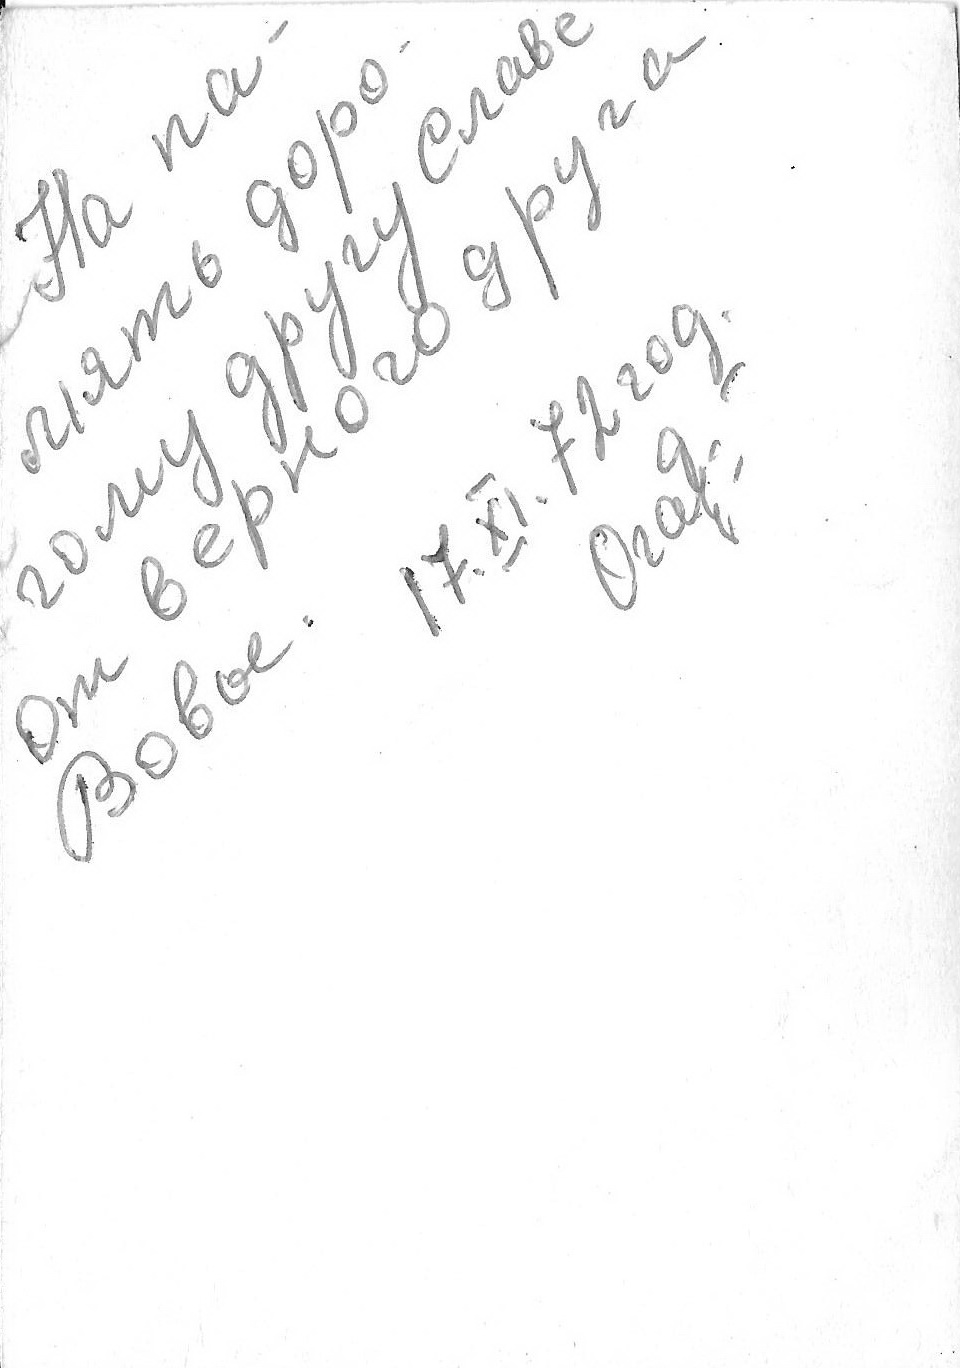 На па-
мять доро-
гому другу Славе
От верного друга
Вовое.
17.XI.72 год.